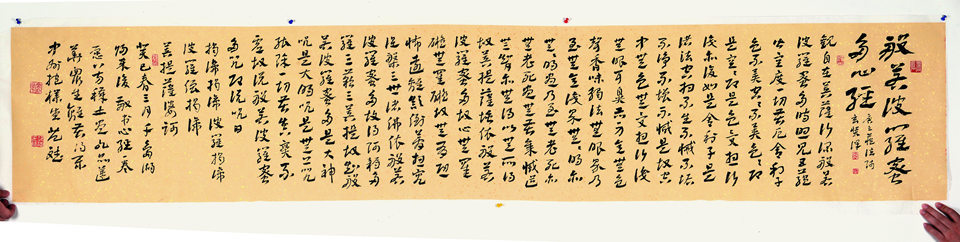 般若波羅蜜
多心經
唐三藏法師
玄奘譯
觀自在菩薩行深般若
波羅蜜多時照見五蘊
皆空度一切苦厄舍利子
色不異空空不異色色
即是空空即是色受想行
識亦復如是舍利子是
諸法空相不生不滅不垢
不淨不增不減是故空
中無色無受想行識
無眼耳鼻舌身意無色
聲香味觸法無眼界乃
至無意識界無無明亦
無無明盡乃至無老死亦
無老死盡無苦集滅道
無智亦無得以無所得
故菩提薩埵依般若
波羅蜜多故心無罣
礙無罣礙故無有恐
怖遠離顛倒夢想究竟
涅槃三世諸佛依般若
波羅蜜多故得阿耨多
羅三藐三菩提故知般
若波羅蜜多是大神
咒是大明咒是無上咒
能除一切苦真實不
虛故說般若波羅蜜
多咒即說咒曰
揭諦揭諦波羅揭諦
波羅僧揭諦
菩提薩婆訶
癸巳春三月于
歸來後敬書心經奉